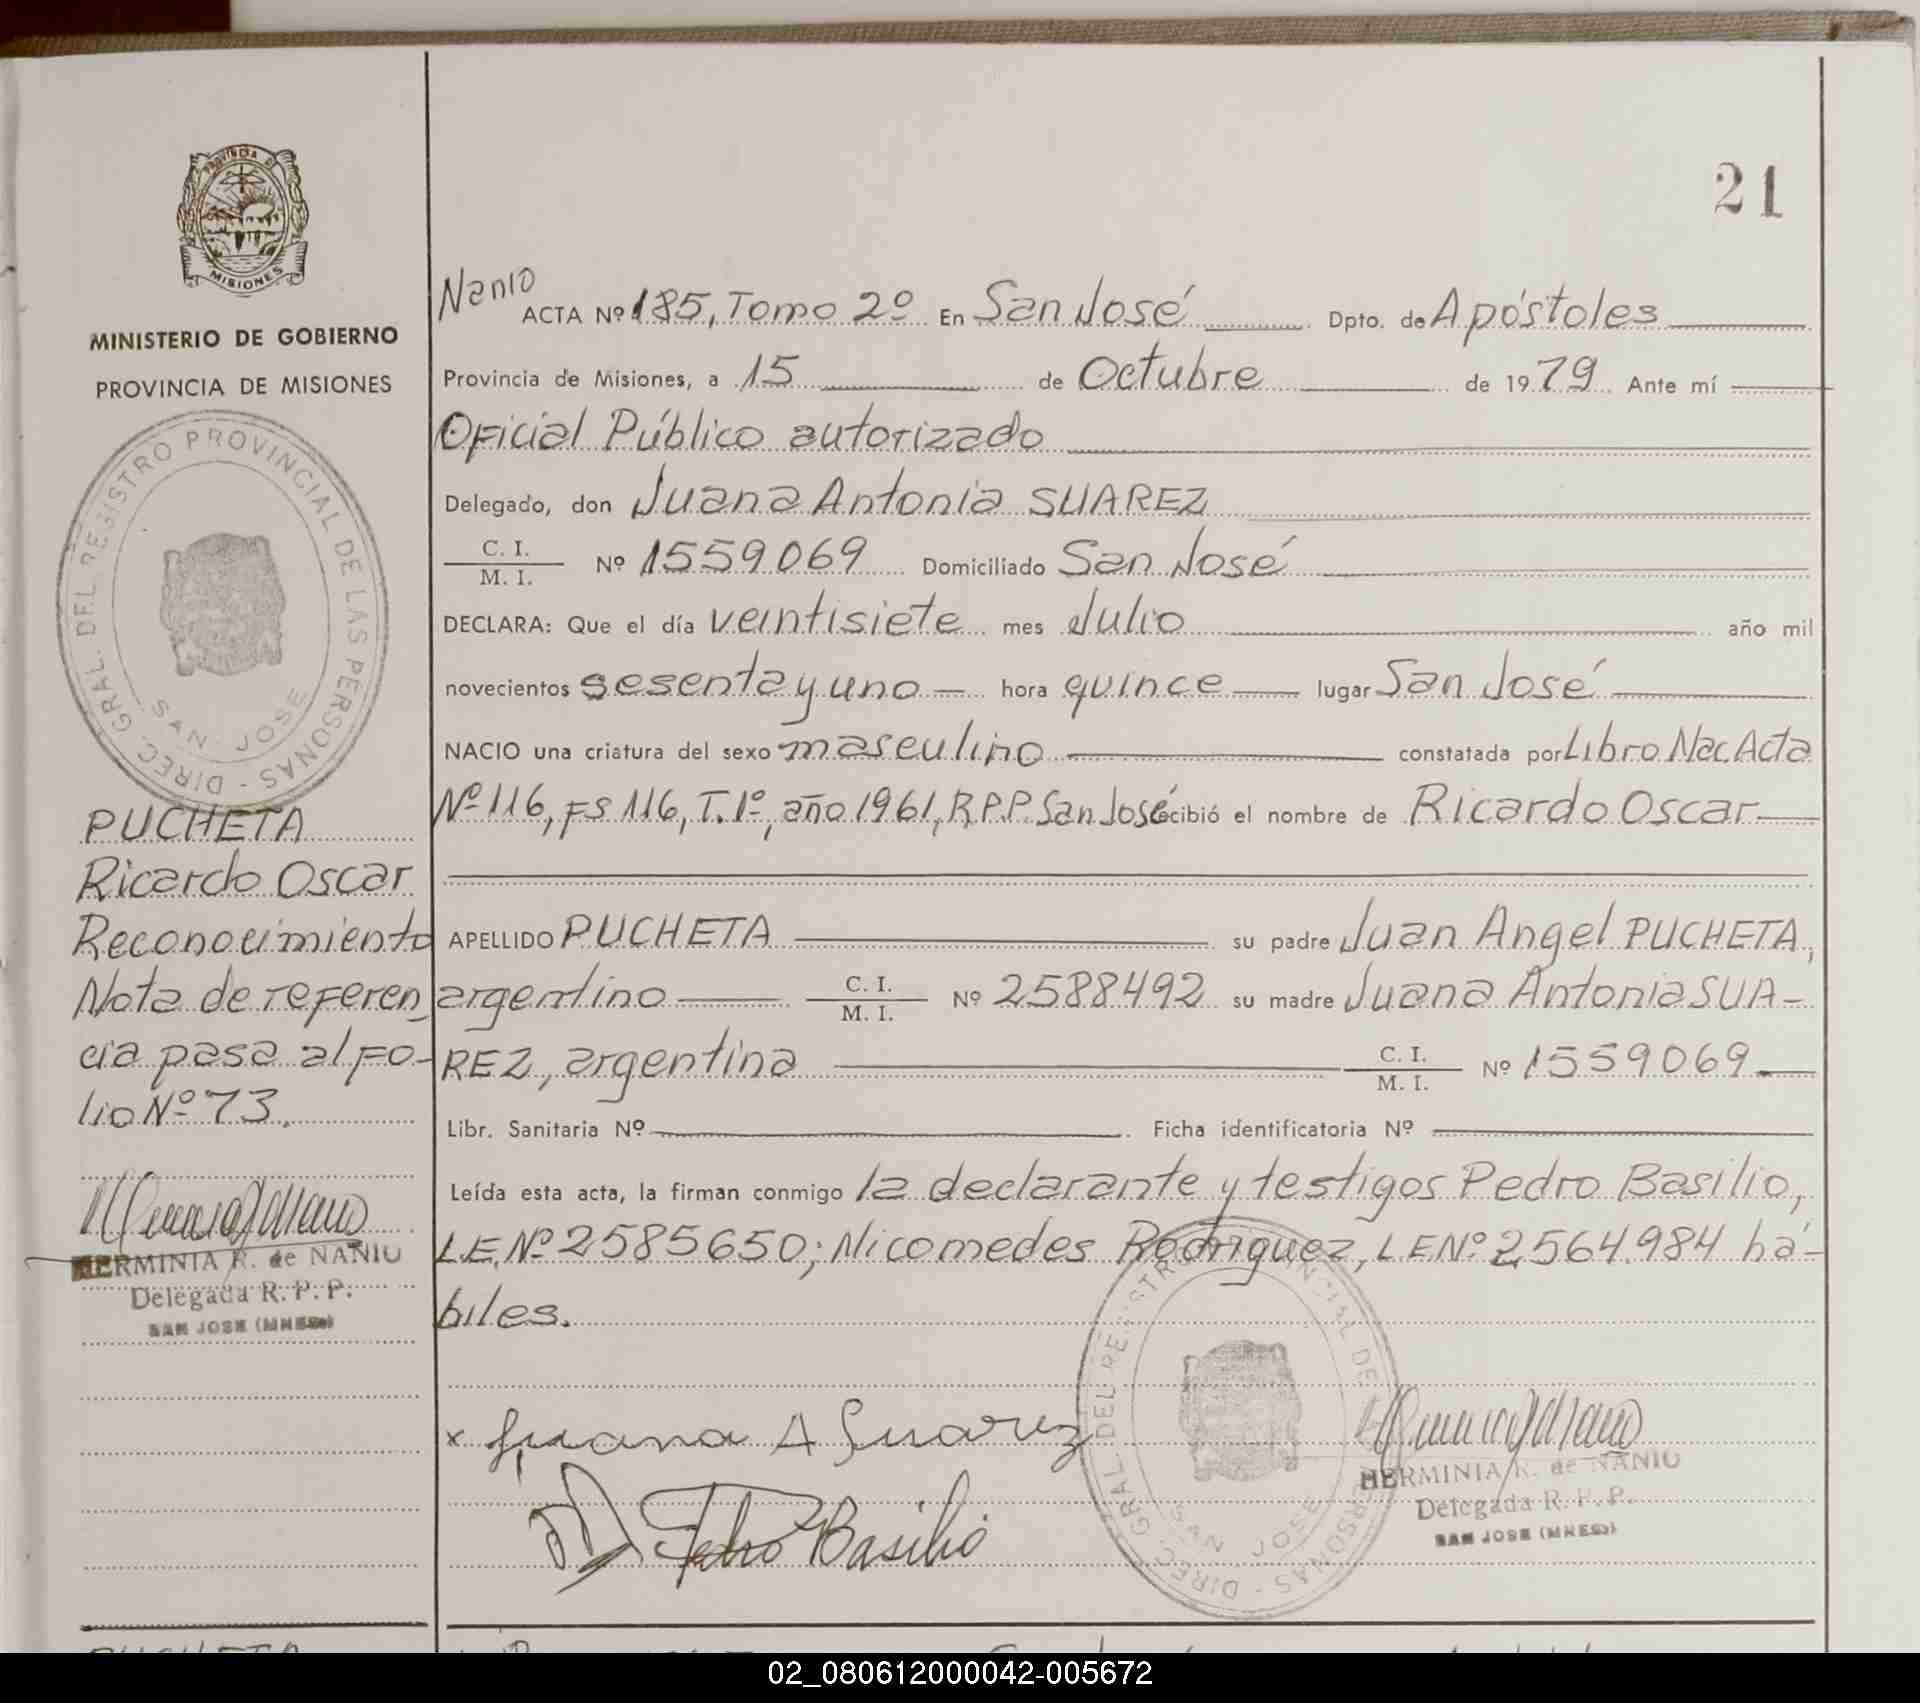 21
PROVINCIA DE
MISIONES
MINISTERIO DE GOBIERNO
PROVINCIA DE MISIONES
DIREC. GRAL. DEL REGISTRO PROVINCIAL DE LAS PERSONAS -
SAN JOSE
PUCHETA
Ricardo Oscar
Reconocimiento
Nota de referen
cia pasa al fo-
lio Nº 73.
HERMINIA R. de NAÑIU
Delegada R. P. P.
SAN JOSE (MNES)
Nanio
ACTA Nº 185, Tomo 2º En San José Dpto. de Apóstoles
Provincia de Misiones, a 15 de Octubre de 1979 Ante mí
Oficial Público autorizado
Delegado, don Juana Antonia SUAREZ
C. I.
M. I. Nº 1559069 Domiciliado San José
DECLARA: Que el día veintisiete mes Julio año mil
novecientos sesenta y uno — hora quince lugar San José
NACIO una criatura del sexo masculino constatada por Libro Nac. Acta
Nº 116, FS 116, T. 1º, año 1961, R.P.P. San José ecibió el nombre de Ricardo Oscar
APELLIDO PUCHETA su padre Juan Angel PUCHETA,
argentino C. I.
M. I. Nº 2588492 su madre Juana Antonia SUA-
REZ, argentina C. I.
M. I. Nº 1559069
Libr. Sanitaria Nº Ficha identificatoria Nº
Leída esta acta, la firman conmigo la declarante y testigos Pedro Basilio,
L.E. Nº 2585650; Nicomedes Rodriguez, L.E Nº 2564.984 há-
biles.
x Juana A Suarez
Pedro Basilio
DIREC. GRAL. DEL REGISTRO PROVINCIAL DE LAS PERSONAS -
SAN JOSE
HERMINIA R. de NAÑIU
Delegada R. P. P.
SAN JOSE (MNES)
PUCHETA
02_080612000042-005672